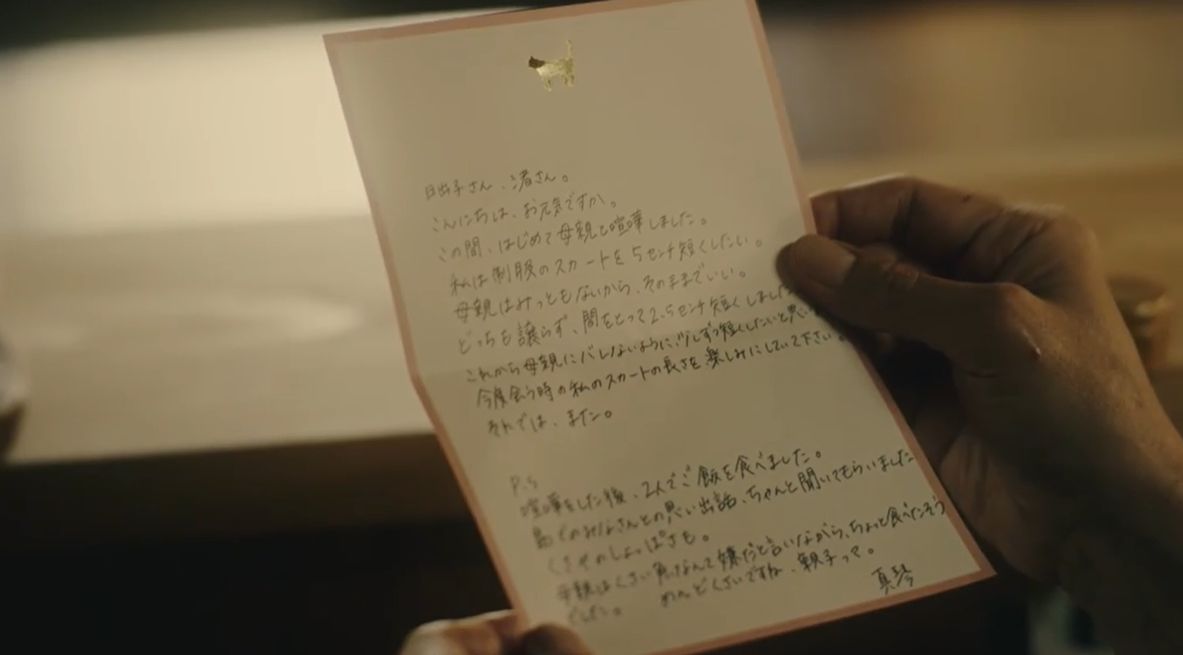 日出子さん、渚さん。
こんにちは、お元気ですか。
この間、はじめて母親と喧嘩しました。
私は制服のスカートを5センチ短くしたい。
母親はみっともないから、そのままでいい。
どっちも譲らず、間をとって2.5センチ短くしました
これから母親にバレないように、少しずつ短くしたいと思い
今度会う時の私のスカートの長さを、楽しみにしていて下さい。
それでは、また。
P.S
喧嘩をした後、2人でご飯を食べました。
島でのみなさんとの思い出話、ちゃんと聞いてもらいました
くさやのしょっぱさも。
母親はくさい魚なんて嫌だと言いながら、ちょっと食べたそう
でした。 めんどくさいですね、親子って。
真琴